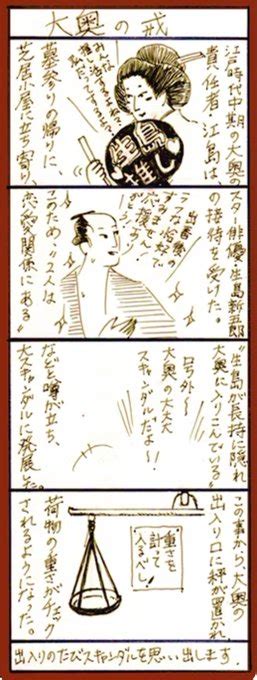 大奥の戒
江戸時代中期の大奥の
責任者・江島は、
墓参りの帰りに、
芝居小屋に立ち寄り、
生島
雄
スター俳優・生島新五郎
の接待を受けた。
このため、"2人は
恋愛関係にある"
"生島が長持に隠れ
大奥に入りこんでいる"
などと噂が立ち、
大スキャンダルに発展した。
号外〜
大奥の大大
スキャンダルだよ〜!
この事から、大奥の
出入り口に秤が置かれ
荷物の重さがチェック
されるようになった。
重さを
計って
入るべし
出入りのたびスキャンダルを思い出します。